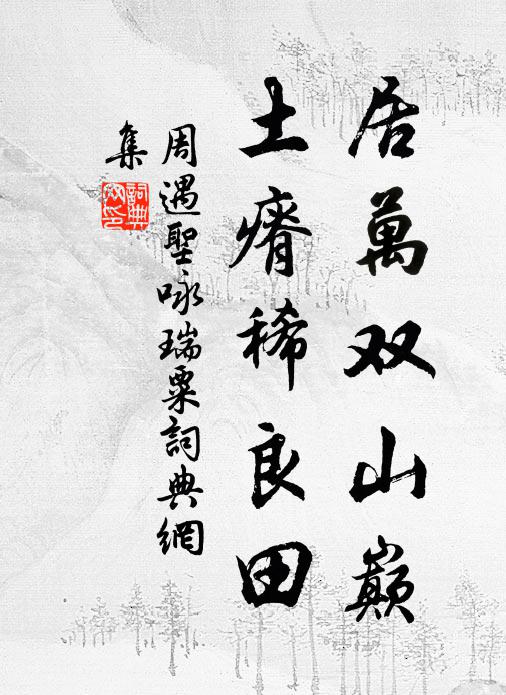 居萬双山巅
土瘠稀良田
周遇聖咏瑞粟詞典網
集
詞典
网印